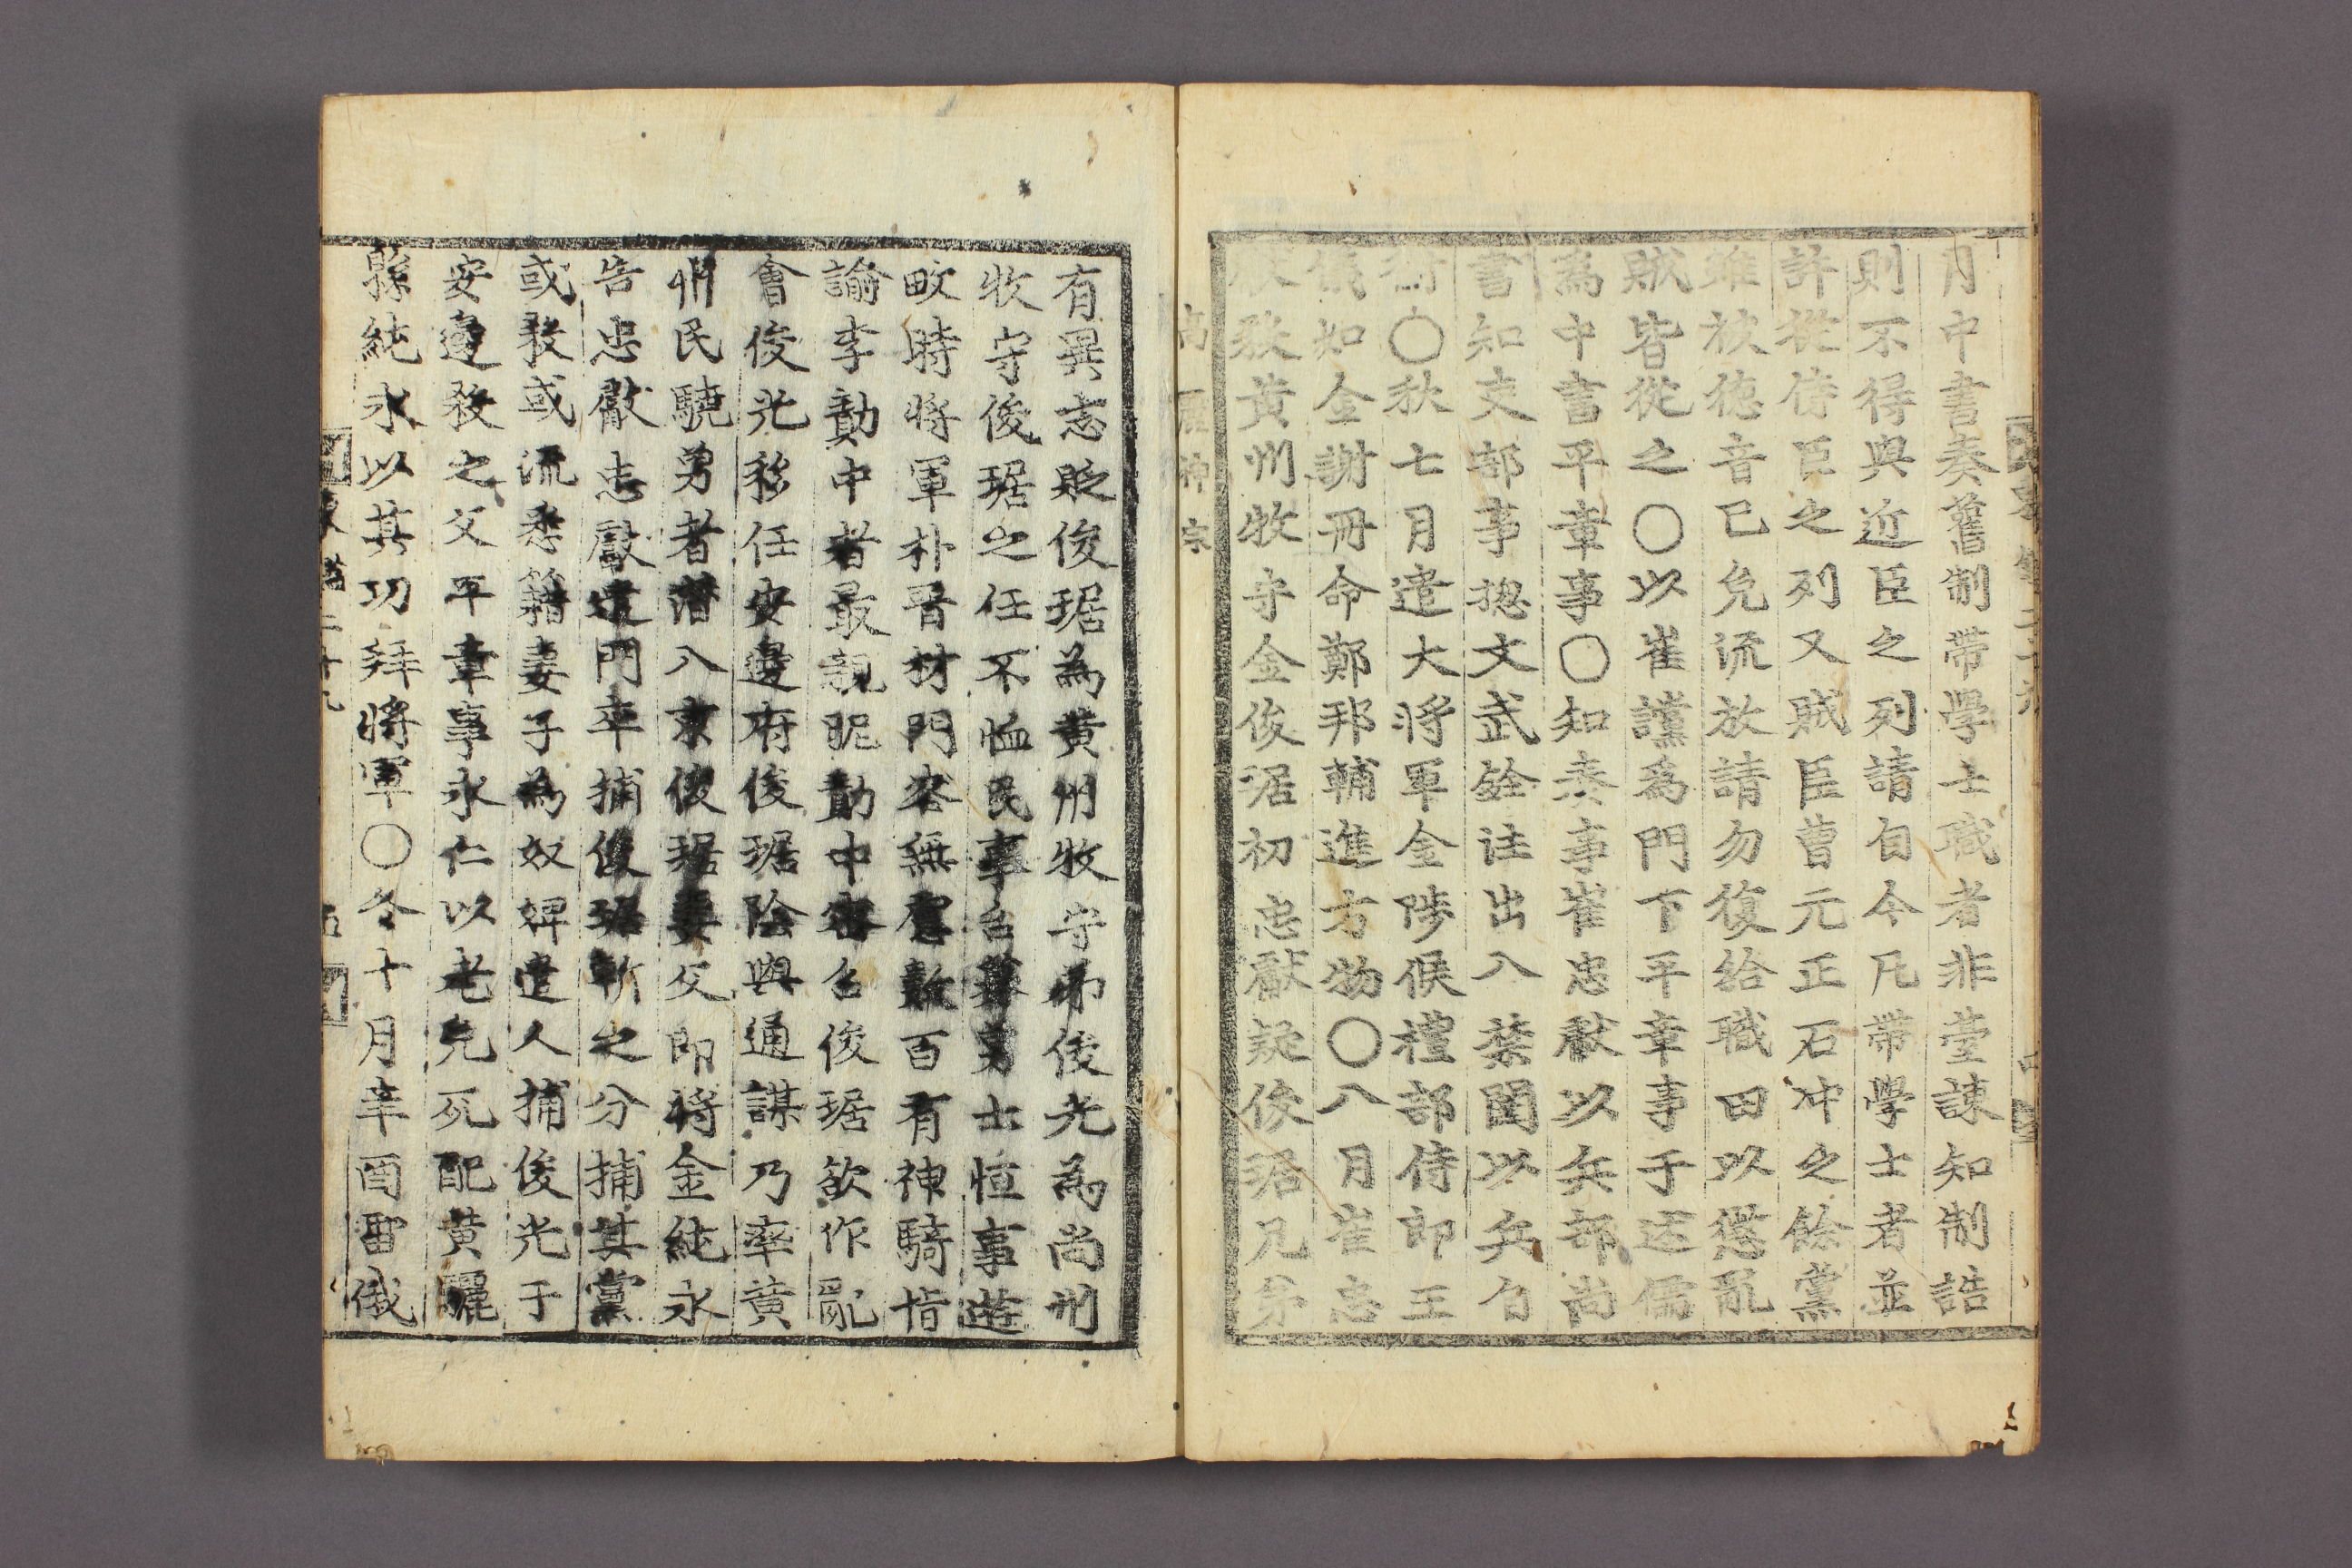 月中書奏舊制帶學士職者非臺諫知制誥
則不得與近臣之列請自今凡帶學士者並
許從侍臣之列又賊臣曹元正石冲之餘黨
雖被德音已免流放請勿復給職田以懲亂
賊皆從之〇以崔讜爲門下平章事于述儒
爲中書平章事〇知奏事崔忠獻以兵部尚
書知吏部事摠文武銓注出入禁闥以兵自
衛〇秋七月遣大將軍金陟侯禮部侍郎王
儀如金謝冊命鄭邦輔進方物〇八月崔忠
獻殺黃州牧守金俊琚初忠獻疑俊琚兄弟
高麗神宗
有異志貶俊琚為黃州牧守弟俊光為尚州
牧守俊琚之任不恤民事召募勇士恒事遊
畋時將軍朴晋材門客無慮數百有神騎指
諭李勣中者最親昵勣中密召俊琚欲作亂
會俊光移任安邊府俊琚陰與通謀乃率黃
州民驍勇者潛入京俊琚妻父郎將金純永
告忠獻忠獻遣門卒捕俊琚斬之分捕其黨
或殺或流悉籍妻子為奴婢遣人捕俊光于
安邊殺之父平章事永仁以老免死配黃驪
縣純永以其功拜將軍〇冬十月辛酉雷俄